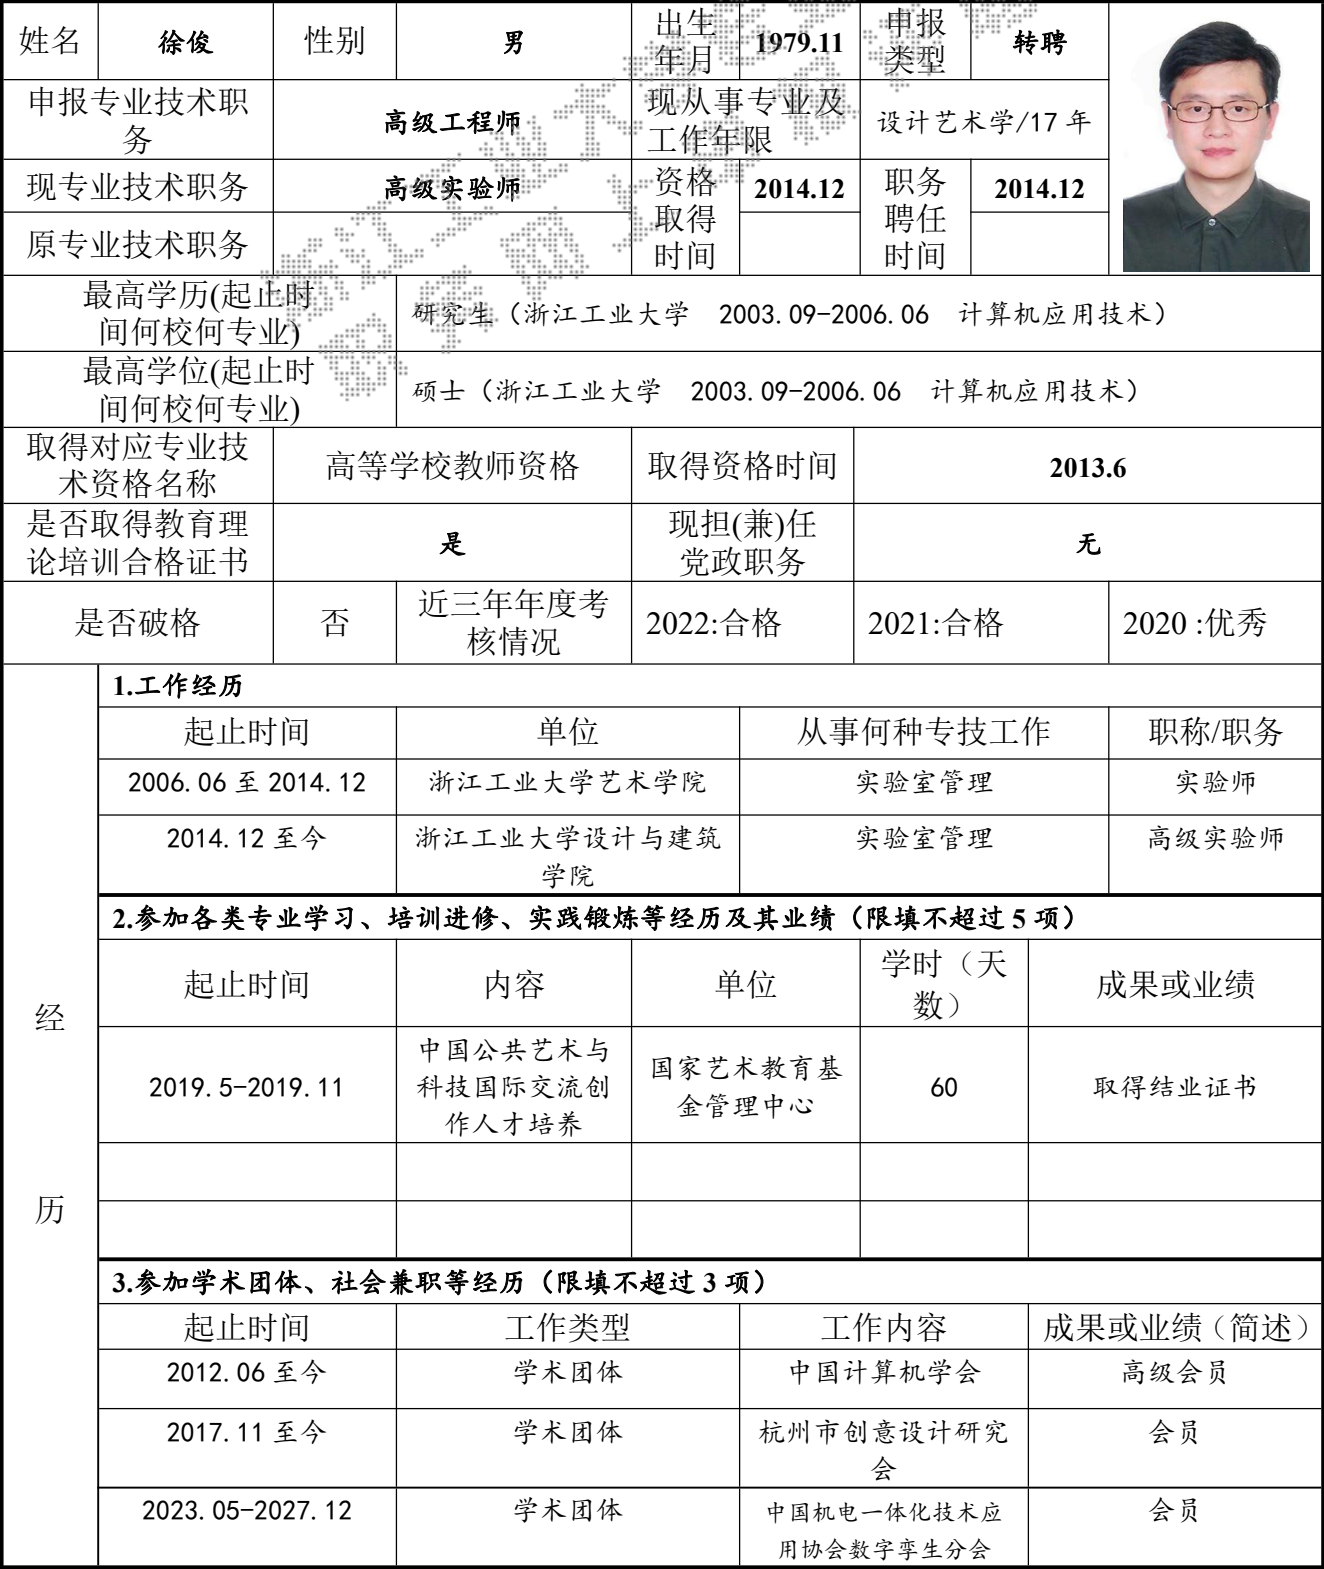 姓名 徐俊 性别 男 出生年月 1979.11 申报类型 转聘
申报专业技术职务 高级工程师 现从事专业及工作年限 设计艺术学/17 年
现专业技术职务 高级实验师 资格取得时间 2014.12 职务聘任时间 2014.12
原专业技术职务
最高学历(起止时间何校何专业) 研究生（浙江工业大学 2003.09-2006.06 计算机应用技术）
最高学位(起止时间何校何专业) 硕士（浙江工业大学 2003.09-2006.06 计算机应用技术）
取得对应专业技术资格名称 高等学校教师资格 取得资格时间 2013.6
是否取得教育理论培训合格证书 是 现担(兼)任党政职务 无
是否破格 否 近三年年度考核情况 2022:合格 2021:合格 2020 :优秀
经历
1.工作经历
起止时间 单位 从事何种专技工作 职称/职务
2006.06 至 2014.12 浙江工业大学艺术学院 实验室管理 实验师
2014.12 至今 浙江工业大学设计与建筑学院 实验室管理 高级实验师
2.参加各类专业学习、培训进修、实践锻炼等经历及其业绩（限填不超过 5 项）
起止时间 内容 单位 学时（天数） 成果或业绩
2019.5-2019.11 中国公共艺术与科技国际交流创作人才培养 国家艺术教育基金管理中心 60 取得结业证书
3.参加学术团体、社会兼职等经历（限填不超过 3 项）
起止时间 工作类型 工作内容 成果或业绩（简述）
2012.06 至今 学术团体 中国计算机学会 高级会员
2017.11 至今 学术团体 杭州市创意设计研究会 会员
2023.05-2027.12 学术团体 中国机电一体化技术应用协会数字孪生分会 会员